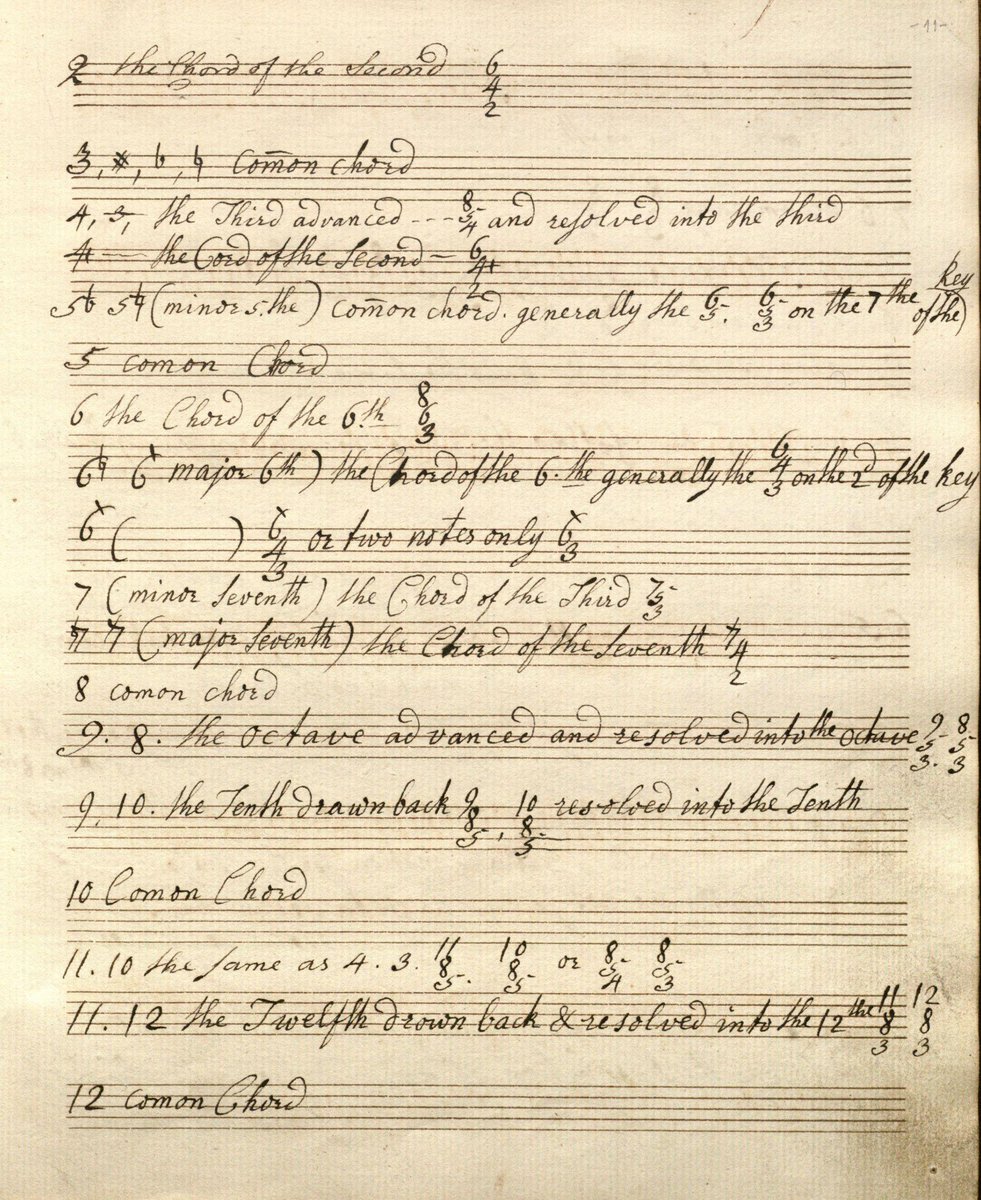 -11-
2 the Chord of the Second 6 4 2
3, #, ♭, ♮ Com̄on chord
4, 3, the Third advanced --- 8 5 4 and resolved into the third
4+ — the Cord of the Second — 6 4+ 2
5♭ 5♮ (minor 5.the) Com̄on chord. generally the 6 5. 6 5 3 on the 7the of the) Key
5 comon Chord
6 the Chord of the 6.th 8 6 3
6♮ 6 major 6th) the Chord of the 6.the generally the 6 4 3 on the 2d of the key
6 ( ) 6 4 3 or two notes only 6 3
7 (minor Seventh) the Chord of the Third 7 5 3
♮7 7 (major Seventh) the Chord of the Seventh 7 4 2
8 comon chord
9. 8. the Octave advanced and resolved into the Octave 9 5 3. 8 5 3
9, 10. the Tenth drawn back 9 8 5, 10 8 5 resolved into the Tenth
10 Comon Chord
11. 10 the same as 4. 3. 11 8 5. 10 8 5 or 8 5 4. 8 5 3
11. 12 the Twelfth drown back & resolved into the 12the 11 8 3 12 8 3
12 comon Chord